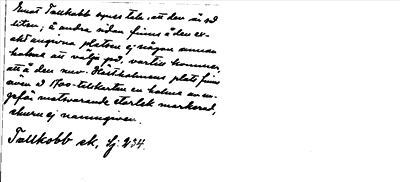 Emot Tallkobb synes tala, att den är så
liten, å andra sidan finns å den ex-
akt angivna platsen ej någon annan
holme att välja på, vartill kommer,
att å den nuv. Hästholmens plats finns
även å 1700-talskartan en holme av un-
gefär motsvarande storlek markerad,
ehuru ej namngiven.
Tallkobb sk, Sj. 234.